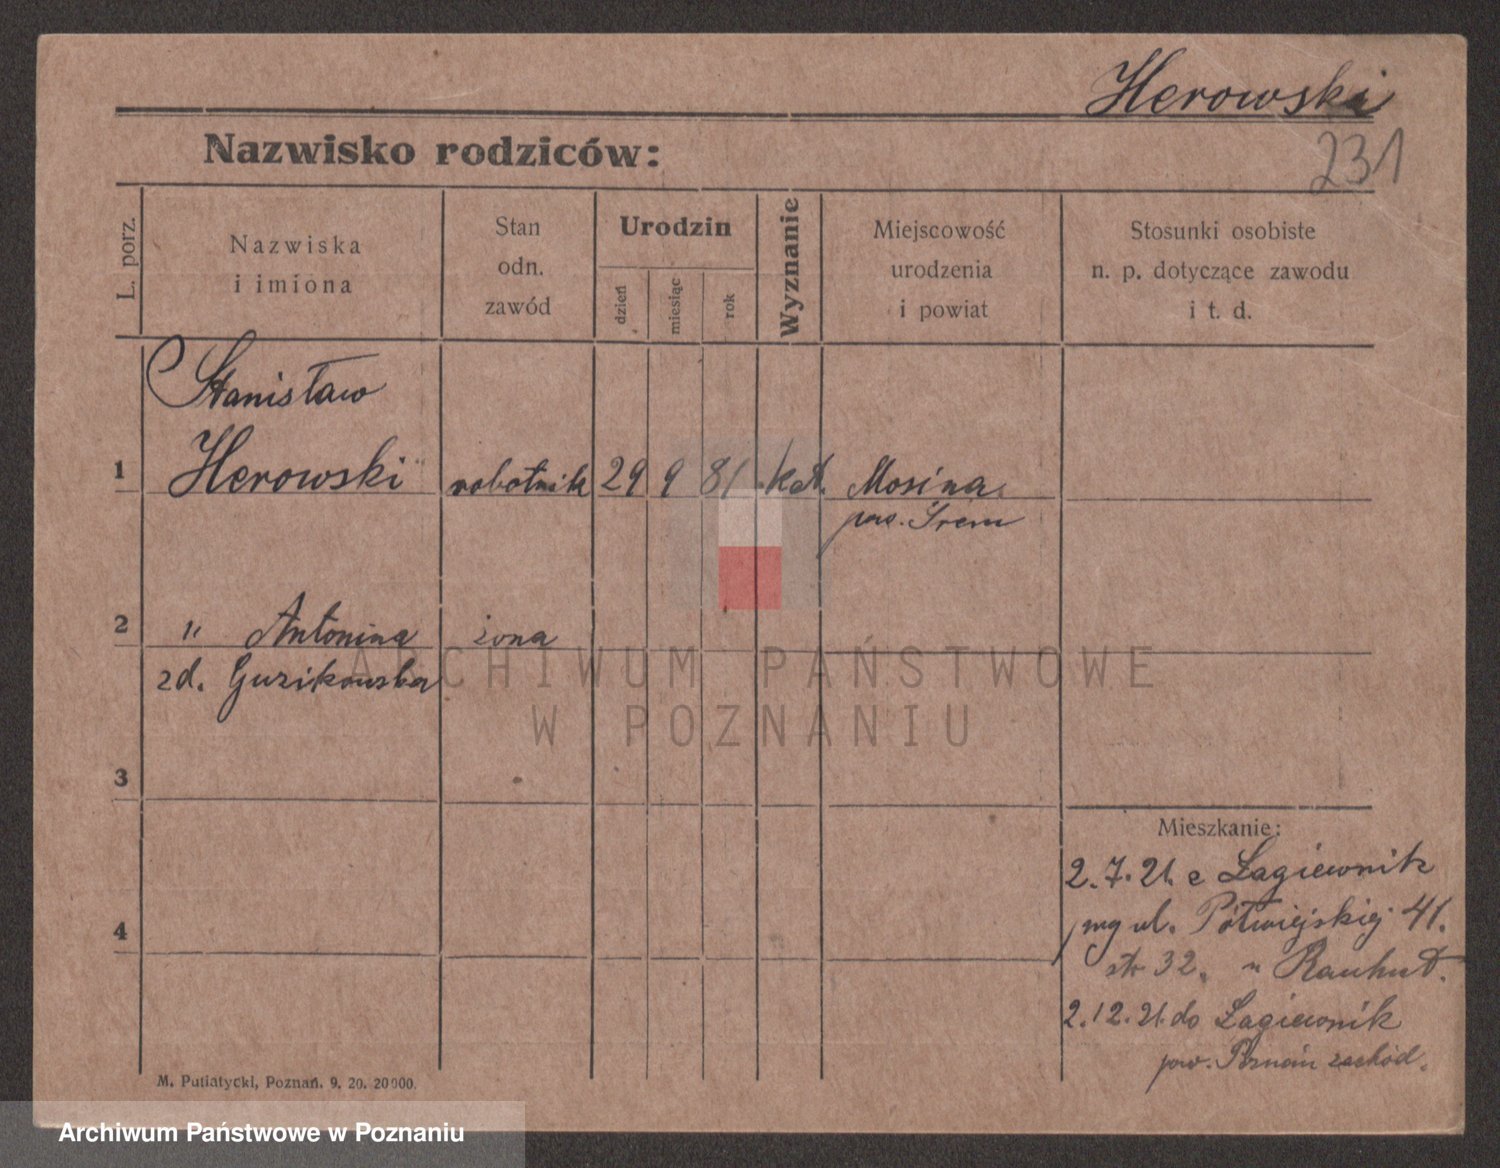 Herowski
231
Nazwisko rodziców:
L. porz.
Nazwiska
i imiona
Stan
odn.
zawód
Urodzin
dzień
miesiąc
rok
Wyznanie
Miejscowość
urodzenia
i powiat
Stosunki osobiste
n. p. dotyczące zawodu
i t. d.
Stanisław
1 Herowski robotnik 29 9 81 kat. Mosina
pow. Śrem
2 " Antonina żona
zd. Guzikowska
3
4
Mieszkanie:
2.7.21. z Łagiewnik
ul. Półwiejskiej 41.
str 32. u Rauhut.
2.12.21. do Łagiewnik
pow. Poznań zachód.
M. Putiatycki, Poznań. 9. 20. 20000.
ARCHIWUM PAŃSTWOWE
W POZNANIU
Archiwum Państwowe w Poznaniu